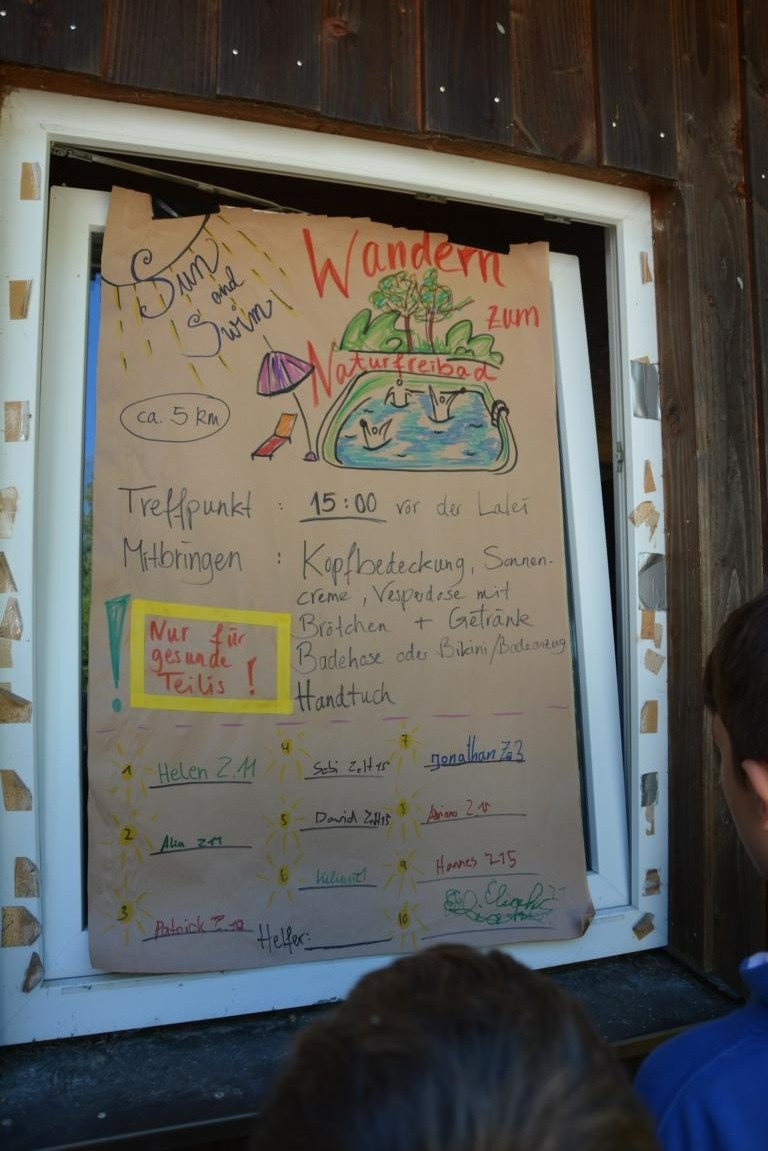 Sun
and
Swim
Wandern
zum
Naturfreibad
ca. 5 km
Treffpunkt : 15:00 vor der Lalei
Mitbringen : Kopfbedeckung, Sonnen-
creme, Vesperdose mit
Brötchen + Getränke
Badehose oder Bikini/Badeanzug
Handtuch
! Nur für
gesunde
Teilis !
1 Helen Z.11
2 Z11
3 Patrick Z.10
4 Sebi Zelt 15
5 David Zelt 15
6
7 Jonathan Ze3
8 Z.15
9 Hannes Z15
10
Helfer: